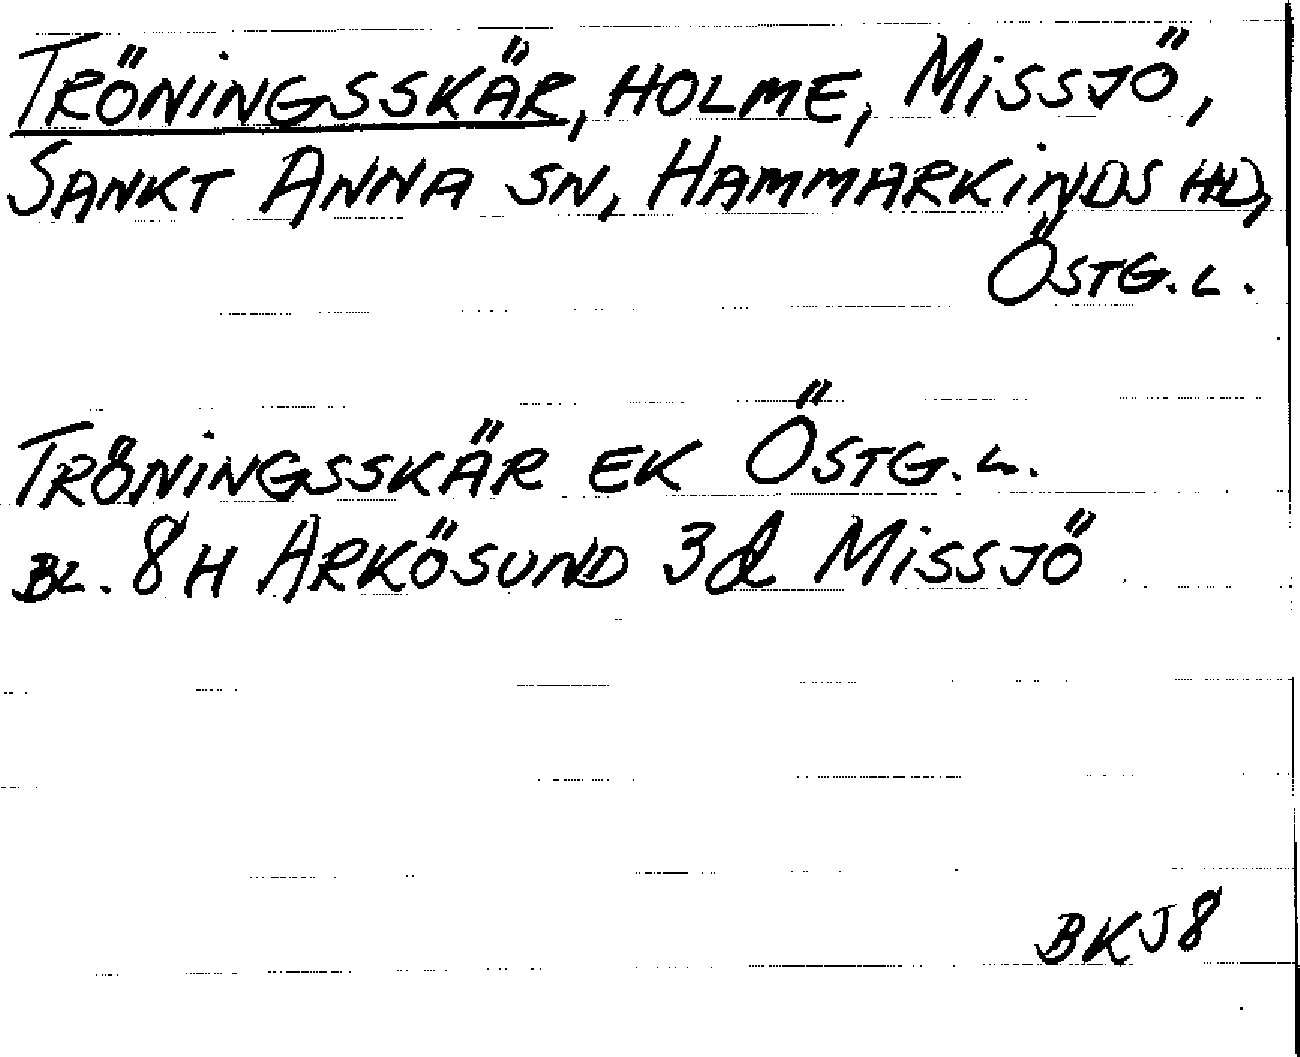 TRÖNINGSSKÄR, HOLME, MISSJÖ,
SANKT ANNA SN, HAMMARKINDS HD,
ÖSTG.L.
TRÖNINGSSKÄR EK ÖSTG.L.
BL. 8H ARKÖSUND 3d MISSJÖ
BKJ8